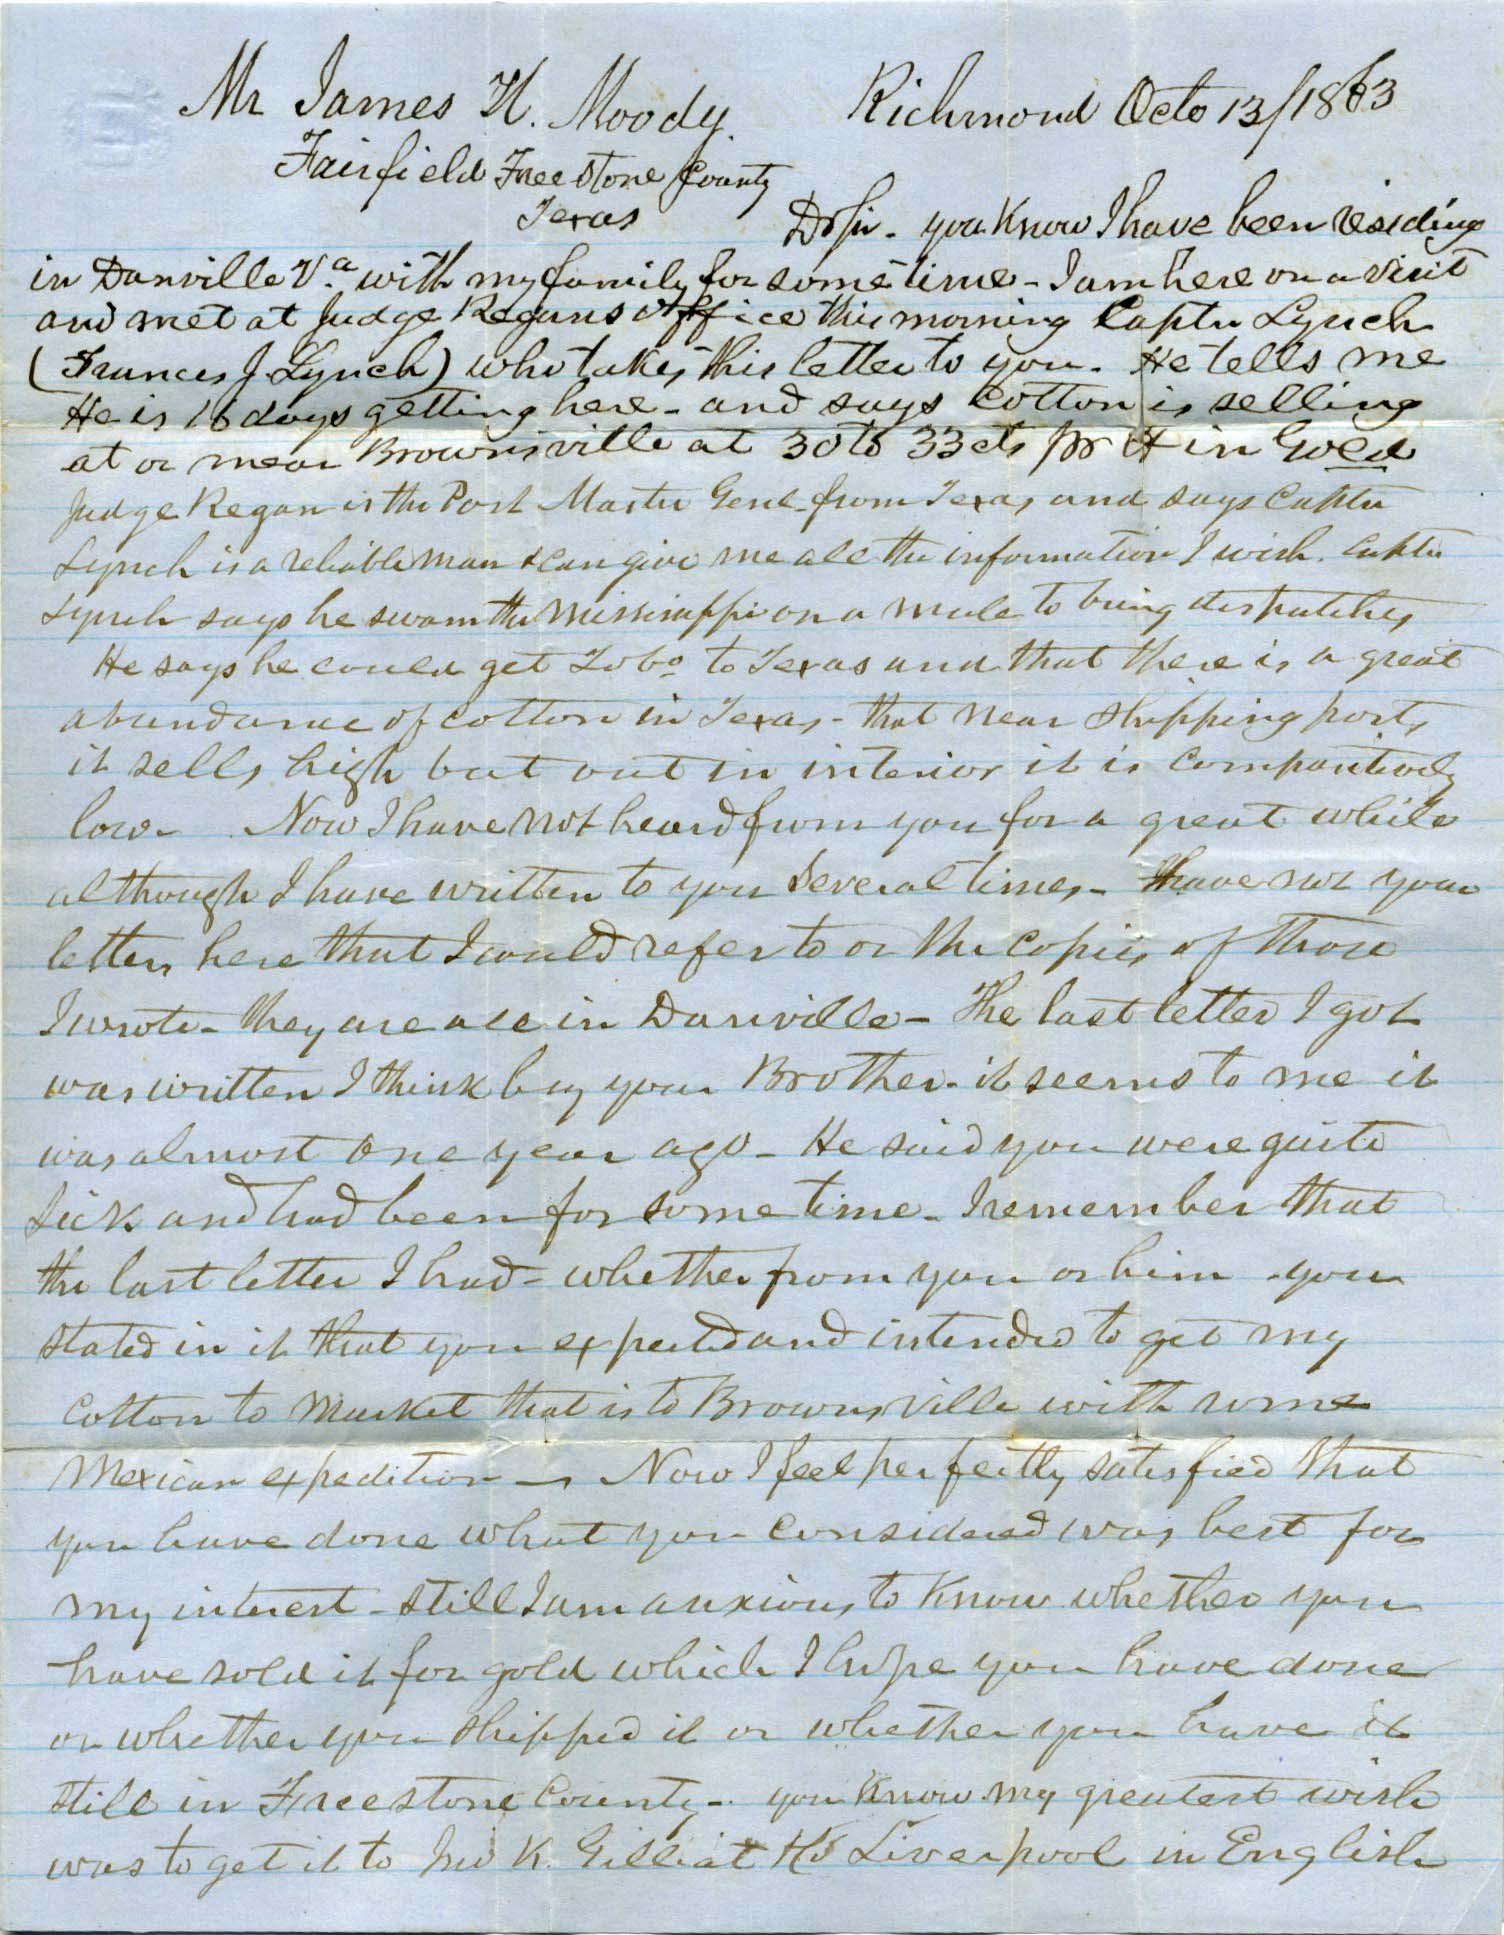 Mr James H. Moody Richmond Octo 13/1863
Fairfield Freestone County
Texas
Dr Sir - you Know I have been residing
in Danville Va. with my family for some time - I am here on a visit
and met at Judge Regans office this morning Captn Lynch
(Frances J. Lynch) who takes this letter to you. He tells me
He is 16 days getting here - and says Cotton is selling
at or near Brownsville at 30 to 33 cts pr lb in Gold
Judge Regan is the Post Master Genl from Texas and says Captn
Lynch is a reliable man & can give me all the information I wish. Captn
Lynch says he swam the Mississippi on a mule to bring dispatches
He says he could get Tobo to Texas and that there is a great
abundance of Cotton in Texas - that near Shipping ports
it sells high but out in interior it is Comparitively
low - Now I have not heard from you for a great while
although I have written to you Several times - I have not your
letters here that I could refer to or the Copies of those
I wrote - they are all in Danville - The last letter I got
was written I think by your Brother - it seems to me it
was almost one year ago - He said you were quite
Sick and had been for some time - I remember that
the last letter I had - whether from you or him - you
stated in it that you expected and intended to get my
Cotton to Market that is to Brownsville with some
Mexican expedition - Now I feel perfectly satisfied that
you have done what you Considered was best for
my interest - still I am anxious to Know whether you
have sold it for gold which I hope you have done
or whether you Shipped it or whether you have it
still in Freestone County - you Know my greatest wish
was to get it to Jno K. Gilliat & Co Liverpool in English